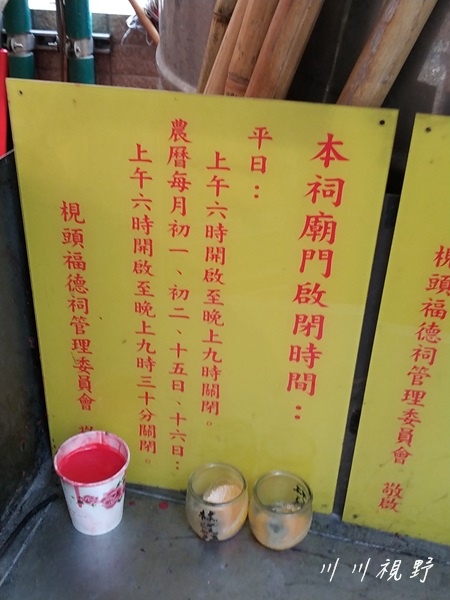 本祠廟門啟閉時間：
平日：
上午六時開啟至晚上九時關閉。
農曆每月初一、初二、十五日、十六日：
上午六時開啟至晚上九時三十分關閉。
梘頭福德祠管理委員會
梘頭福德祠管理委員會 敬啟
川川視野